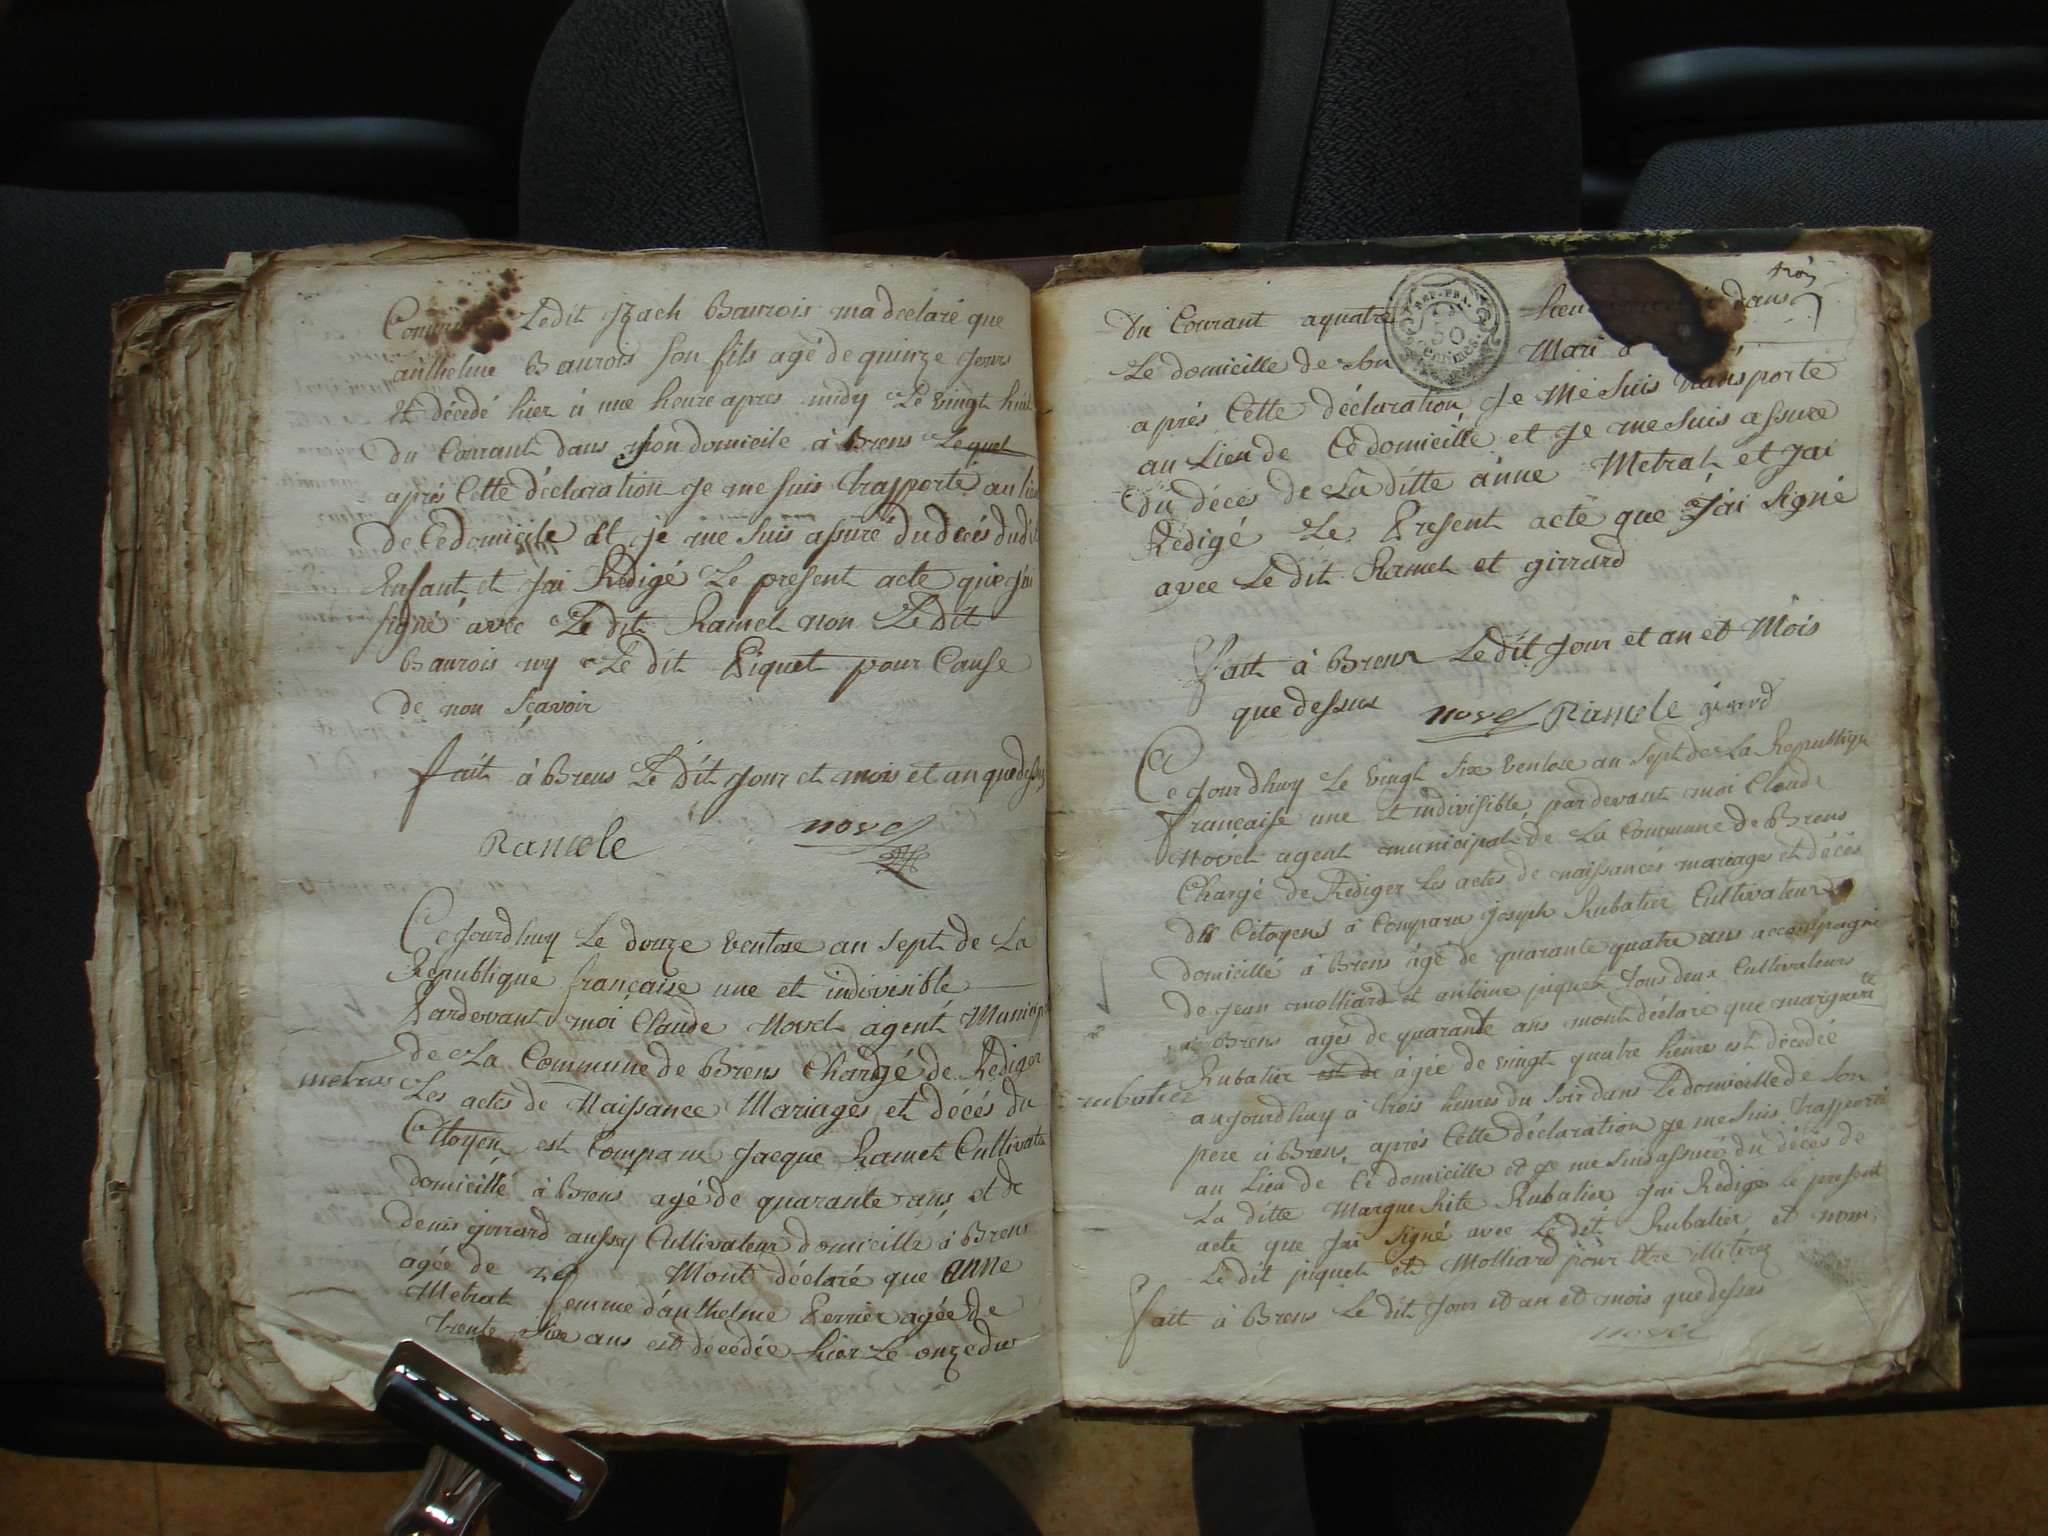 Ledit Izach Baurois ma déclaré que
anthelme Baurois son fils agé de quinze Jours
Et décédé hier à une heure apres midy Le vingt huit
du Courrant dans mon domicile à Brens Lequel
aprés Cette déclaration Je me suis trasporté au lieu
de Ce domicile et je me suis assuré du decés dudit
Enfant et Jai Rédigé Le present acte que jai
signé avec Le dit Ramel non Ledit
Baurois ny Le dit Piquet pour Cause
de non sçavoir
fait à Brens Le dit Jour et mois et an que dessus
Ramele novel
Cejourdhuy Le douze ventose an sept de La
Republique française une et indivisible
Pardevant moi Claude Novel agent Municipal
de La Commune de Brens Chargé de Rédiger
metras
Les actes de Naissance Mariages et décés du
Citoyen est Comparu Jacque Ramel Cultivate
domicillé à Brens agé de quarante ans et de
denis girrard aussy Cultivateur domicillé à Brens
agée de Mont déclaré que anne
Metral femme d'anthelme Perrier agée de
trente six ans est décedée hier Le onze du
trois
du Courant a quatre dans
REP. FRA. 50 centimes
Le domicille de son Mari a
aprés Cette déclaration Je Me suis transporté
au Lieu de Ce domicille et Je me suis assuré
du déces de La ditte anne Metral et Jai
Rédigé Le Present acte que Jai Signé
avec Le dit Ramel et girrard
fait à Brens Ledit Jour et an et Mois
que dessus novel Ramele girard
Ce Jourdhuy Le vingt six ventose an sept de La Republique
française une et indivisible pardevant moi Claude
Novel agent municipal de La Commune de Brens
Chargé de Rédiger Les actes de naissances mariages et décés
des Citoyens à Comparu Joseph Rubatier Cultivateur
domicillé à Brens agé de quarante quatre ans accompagné
de jean molliard et antoine piquet tous deux Cultivateurs
à Brens agés de quarante ans mont déclaré que marguerite
Rubatier est de agée de vingt quatre heure est décedée
rubatier
aujourdhuy à trois heures du soir dans Le domicille de son
pere à Brens, aprés Cette déclaration je me suis trasporté
au Lieu de Ce domicille et je me suis assuré du décés de
La ditte Marguerite Rubatier Jai Rédigé le present
acte que Jai Signé avec Le dit Rubatier et nom
Le dit piquet et Molliard pour être illiterez
fait à Brens Le dit Jour et an et mois que dessus
novel